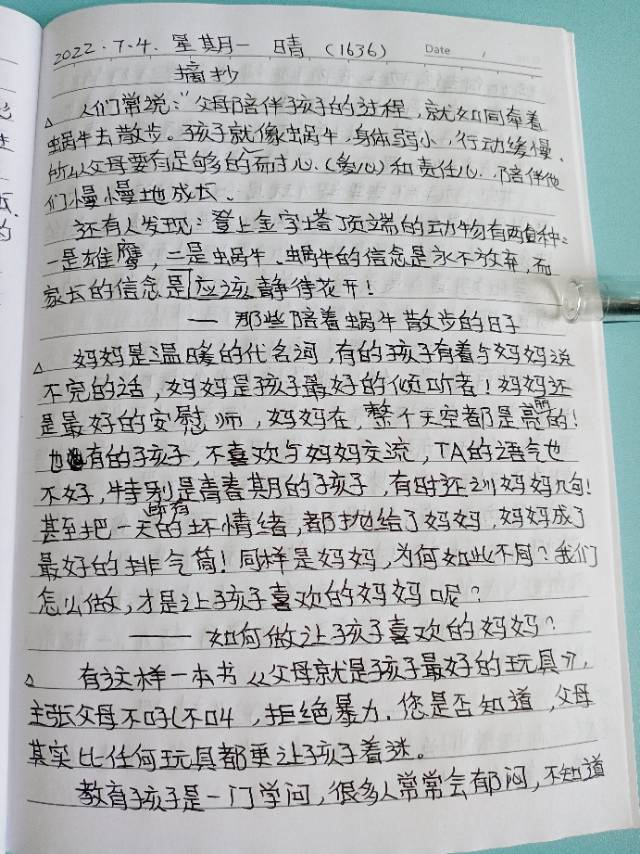 2022.7.4. 星期一 晴 (1636) Date
摘抄
△ 人们常说："父母陪伴孩子的过程,就如同牵着
蜗牛去散步。孩子就像蜗牛,身体弱小,行动缓慢.
所以父母要有足够的耐心.(爱心)和责任心.陪伴他
们慢慢地成长.
还有人发现:登上金字塔顶端的动物有两种:
一是雄鹰,二是蜗牛.蜗牛的信念是永不放弃,而
家长的信念是应该静待花开!
— 那些陪着蜗牛散步的日子
△ 妈妈是温暖的代名词,有的孩子有着与妈妈说
不完的话,妈妈是孩子最好的倾听者!妈妈还
是最好的安慰师,妈妈在,整个天空都是亮的!
也有的孩子,不喜欢与妈妈交流,TA的语气也
不好,特别是青春期的孩子,有时还训妈妈几句!
甚至把一天的所有坏情绪,都抛给了妈妈,妈妈成了
最好的排气筒!同样是妈妈,为何如此不同?我们
怎么做,才是让孩子喜欢的妈妈呢?
—— 如何做让孩子喜欢的妈妈?
△ 有这样一本书《父母就是孩子最好的玩具》,
主张父母不吼不叫,拒绝暴力.您是否知道,父母
其实比任何玩具都更让孩子着迷。
教育孩子是一门学问,很多人常常会郁闷,不知道